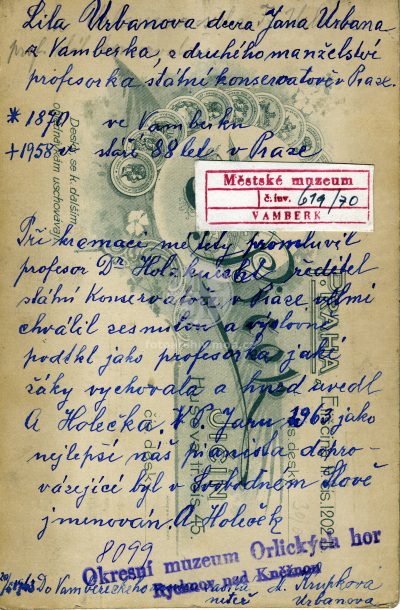 Lila Urbanova dcera Jana Urbana
z Vamberka, z druhého manželství
profesorka státní konservatoře v Praze.
* 1870 ve Vamberku
+ 1958 v stáří 88 let v Praze
Městské muzeum
č. inv. 619/70
VAMBERK
Při kremaci me tety promluvil
profesor Dr Holzknecht ředitel
státní Konservatoře v Praze velmi
chválil zesnulou a výslovně
podtkl jako profesorka jaké
žáky vychovala a hned uvedl
A Holečka. V P. Jaru 1963 jako
nejlepší náš pianista dopro-
vázející byl v Svobodném Slově
jmenován A Holeček
8099
Okresní muzeum Orlických hor
Rychnov nad Kněžnou
Do Vambereckého
A. Krupková
neteř Urbanova
Desky se k dalším
objednávkám uschovávají
PRAHA
JIČÍN